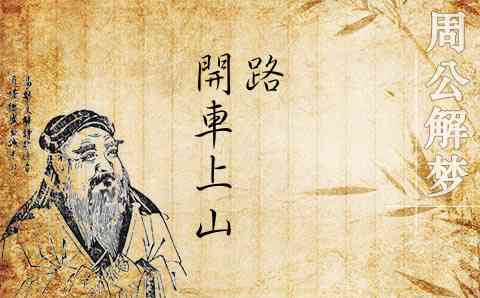 周公解梦
路
開車上山